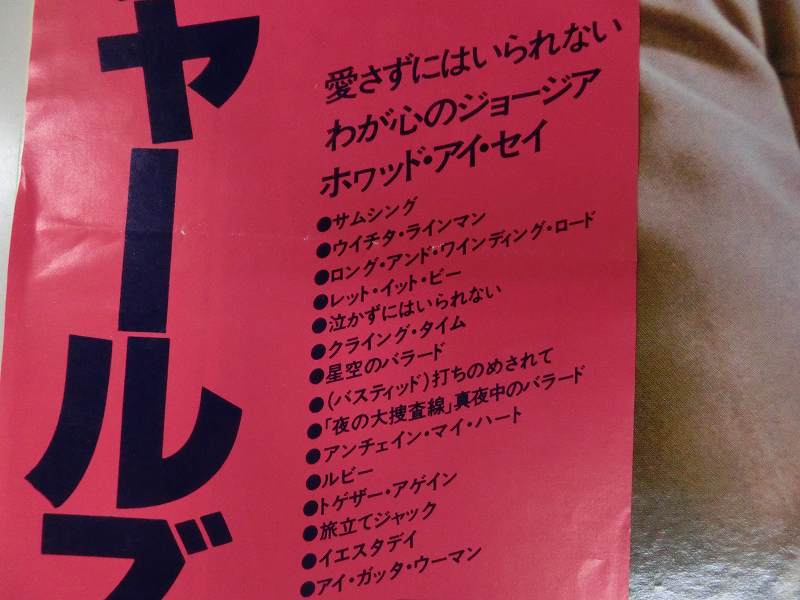 ャールズ
愛さずにはいられない
わが心のジョージア
ホワッド・アイ・セイ
●サムシング
●ウイチタ・ラインマン
●ロング・アンド・ワインディング・ロード
●レット・イット・ビー
●泣かずにはいられない
●クライング・タイム
●星空のバラード
●(バスティッド)打ちのめされて
●「夜の大捜査線」真夜中のバラード
●アンチェイン・マイ・ハート
●ルビー
●トゲザー・アゲイン
●旅立てジャック
●イエスタデイ
●アイ・ガッタ・ウーマン